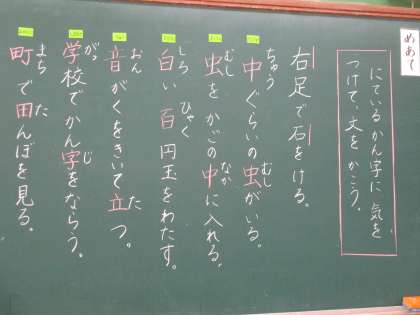 めあて
にているかん字に気を
つけて、文をかこう。
右足で石をける。
中ぐらいの虫がいる。
ちゅう
むし
虫をかごの中に入れる。
むし
なか
白い百円玉をわたす。
しろ
ひゃく
音がくをきいて立つ。
おん
た
学校でかん字をならう。
がっ
じ
町で田んぼを見る。
まち
た